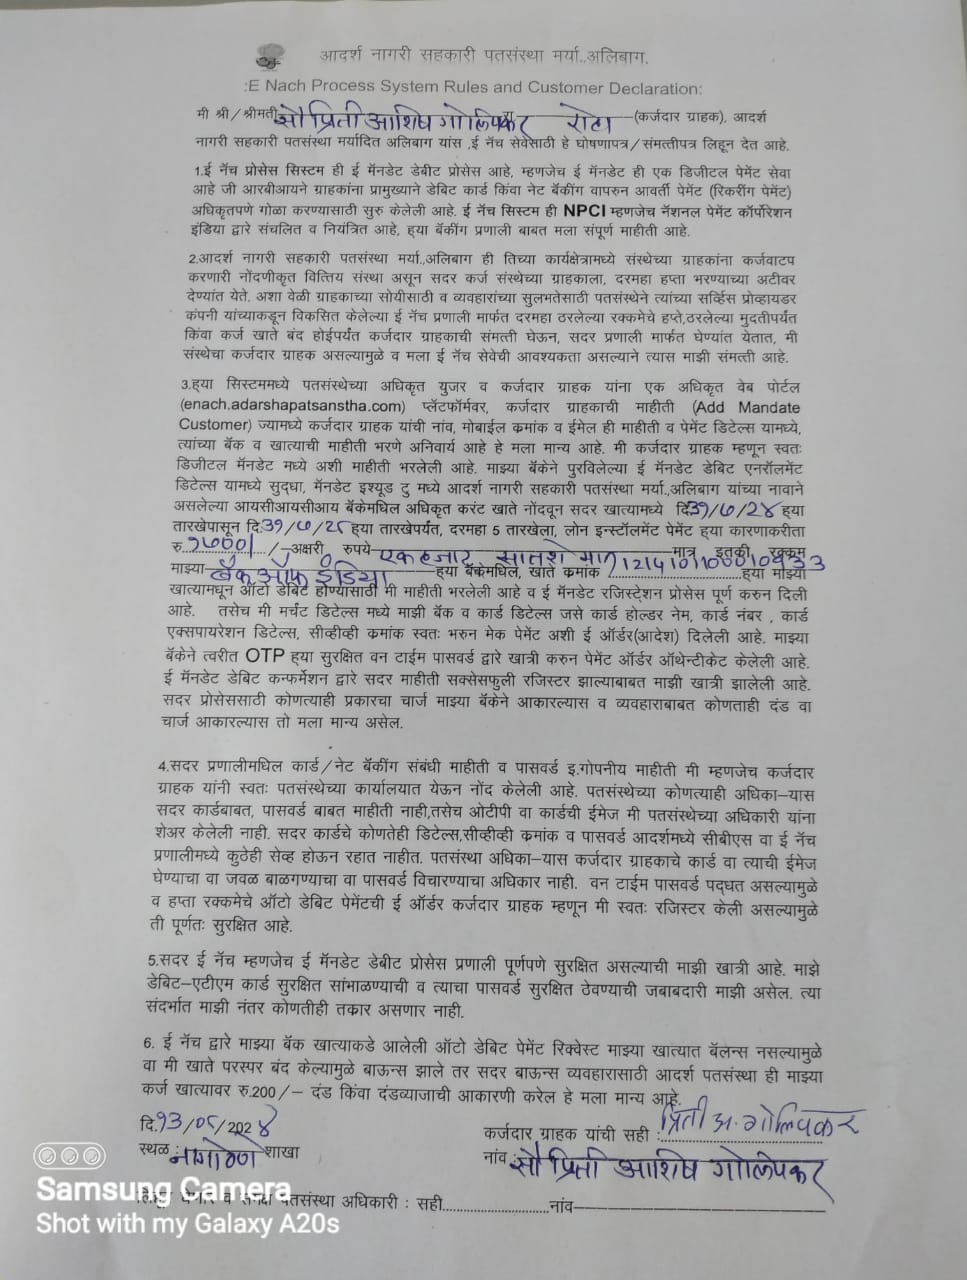 आदर्श नागरी सहकारी पतसंस्था मर्या.,अलिबाग.
:E Nach Process System Rules and Customer Declaration:
मी श्री/श्रीमती सौ प्रिती आशिष गोळिपकर रोटा (कर्जदार ग्राहक), आदर्श
नागरी सहकारी पतसंस्था मर्यादित अलिबाग यांस ,ई नॅच सेवेसाठी हे घोषणापत्र/संमत्तीपत्र लिहून देत आहे.
1.ई नॅच प्रोसेस सिस्टिम ही ई मॅनडेट डेबीट प्रोसेस आहे, म्हणजेच ई मॅनडेट ही एक डिजिटल पेमेंट सेवा
आहे जी आरबीआयने ग्राहकांना प्रामुख्याने डेबिट कार्ड किंवा नेट बॅकींग वापरुन आवर्ती पेमेंट (रिकरींग पेमेंट)
अधिकृतपणे गोळा करण्यासाठी सुरु केलेली आहे. ई नॅच सिस्टिम ही NPCI म्हणजेच नॅशनल पेमेंट कॉर्पोरेशन
इंडिया द्वारे संचलित व नियंत्रित आहे, ह्या बॅकींग प्रणाली बाबत मला संपूर्ण माहीती आहे.
2.आदर्श नागरी सहकारी पतसंस्था मर्या.,अलिबाग ही तिच्या कार्यक्षेत्रामध्ये संस्थेच्या ग्राहकांना कर्जवाटप
करणारी नोंदणीकृत वित्तिय संस्था असून सदर कर्ज संस्थेच्या ग्राहकाला, दरमहा हप्ता भरण्याच्या अटीवर
देण्यांत येते. अशा वेळी ग्राहकाच्या सोयीसाठी व व्यवहारांच्या सुलभतेसाठी पतसंस्थेने त्यांच्या सर्व्हिस प्रोव्हायडर
कंपनी यांच्याकडून विकसित केलेल्या ई नॅच प्रणाली मार्फत दरमहा ठरलेल्या रक्कमेचे हप्ते,ठरलेल्या मुदतीपर्यंत
किंवा कर्ज खाते बंद होईपर्यंत कर्जदार ग्राहकाची संमत्ती घेऊन, सदर प्रणाली मार्फत घेण्यांत येतात, मी
संस्थेचा कर्जदार ग्राहक असल्यामुळे व मला ई नॅच सेवेची आवश्यकता असल्याने त्यास माझी संमत्ती आहे.
3.ह्या सिस्टिममध्ये पतसंस्थेच्या अधिकृत युजर व कर्जदार ग्राहक यांना एक अधिकृत वेब पोर्टल
(enach.adarshapatsanstha.com) प्लॅटफॉर्मवर, कर्जदार ग्राहकाची माहीती (Add Mandate
Customer) ज्यामध्ये कर्जदार ग्राहक यांची नांव, मोबाईल क्रमांक व ईमेल ही माहीती व पेमेंट डिटेल्स यामध्ये,
त्यांच्या बॅक व खात्याची माहीती भरणे अनिवार्य आहे हे मला मान्य आहे. मी कर्जदार ग्राहक म्हणून स्वतः
डिजीटल मॅनडेट मध्ये अशी माहीती भरलेली आहे. माझ्या बॅकेने पुरविलेल्या ई मॅनडेट डेबिट एनरॉलमेंट
डिटेल्स यामध्ये सुद्धा, मॅनडेट इश्यूड टु मध्ये आदर्श नागरी सहकारी पतसंस्था मर्या.,अलिबाग यांच्या नावाने
असलेल्या आयसीआयसीआय बॅकेमधिल अधिकृत करंट खाते नोंदवून सदर खात्यामध्ये दि.३१/७/२४ ह्या
तारखेपासून दि.३१/७/२८ ह्या तारखेपर्यंत, दरमहा 5 तारखेला, लोन इन्स्टॉलमेंट पेमेंट ह्या कारणाकरीता
रु.१७००/ /–अक्षरी रुपये एक हजार सातशे मात्र मात्र इतकी रक्कम
माझ्या बँक ऑफ इंडिया ह्या बॅकेमधिल, खाते क्रमांक ह्या माझ्या
खात्यामधून ऑटो डेबिट होण्यासाठी मी माहीती भरलेली आहे व ई मॅनडेट रजिस्ट्रेशन प्रोसेस पूर्ण करुन दिली
आहे. तसेच मी मर्चंट डिटेल्स मध्ये माझी बॅक व कार्ड डिटेल्स जसे कार्ड होल्डर नेम, कार्ड नंबर , कार्ड
एक्सपायरेशन डिटेल्स, सीव्हीव्ही क्रमांक स्वतः भरुन मेक पेमेंट अशी ई ऑर्डर(आदेश) दिलेली आहे. माझ्या
बॅकेने त्वरीत OTP ह्या सुरक्षित वन टाईम पासवर्ड द्वारे खात्री करुन पेमेंट ऑर्डर ऑथेन्टीकेट केलेली आहे.
ई मॅनडेट डेबिट कन्फर्मेशन द्वारे सदर माहीती सक्सेसफुली रजिस्टर झाल्याबाबत माझी खात्री झालेली आहे.
सदर प्रोसेससाठी कोणत्याही प्रकारचा चार्ज माझ्या बॅकेने आकारल्यास व व्यवहाराबाबत कोणताही दंड वा
चार्ज आकारल्यास तो मला मान्य असेल.
4.सदर प्रणालीमधिल कार्ड/नेट बॅकींग संबंधी माहीती व पासवर्ड इ.गोपनीय माहीती मी म्हणजेच कर्जदार
ग्राहक यांनी स्वतः पतसंस्थेच्या कार्यालयात येऊन नोंद केलेली आहे. पतसंस्थेच्या कोणत्याही अधिका–यास
सदर कार्डबाबत, पासवर्ड बाबत माहीती नाही,तसेच ओटीपी वा कार्डची ईमेज मी पतसंस्थेच्या अधिकारी यांना
शेअर केलेली नाही. सदर कार्डचे कोणतेही डिटेल्स,सीव्हीव्ही क्रमांक व पासवर्ड आदर्शमध्ये सीबीएस वा ई नॅच
प्रणालीमध्ये कुठेही सेव्ह होऊन रहात नाहीत. पतसंस्था अधिका–यास कर्जदार ग्राहकाचे कार्ड वा त्याची ईमेज
घेण्याचा वा जवळ बाळगण्याचा वा पासवर्ड विचारण्याचा अधिकार नाही. वन टाईम पासवर्ड पद्धत असल्यामुळे
व हप्ता रक्कमेचे ऑटो डेबिट पेमेंटची ई ऑर्डर कर्जदार ग्राहक म्हणून मी स्वतः रजिस्टर केली असल्यामुळे
ती पूर्णतः सुरक्षित आहे.
5.सदर ई नॅच म्हणजेच ई मॅनडेट डेबीट प्रोसेस प्रणाली पूर्णपणे सुरक्षित असल्याची माझी खात्री आहे. माझे
डेबिट–एटीएम कार्ड सुरक्षित सांभाळण्याची व त्याचा पासवर्ड सुरक्षित ठेवण्याची जबाबदारी माझी असेल. त्या
संदर्भात माझी नंतर कोणतीही तक्रार असणार नाही.
6. ई नॅच द्वारे माझ्या बॅक खात्याकडे आलेली ऑटो डेबिट पेमेंट रिक्वेस्ट माझ्या खात्यात बॅलन्स नसल्यामुळे
वा मी खाते परस्पर बंद केल्यामुळे बाऊन्स झाले तर सदर बाऊन्स व्यवहारासाठी आदर्श पतसंस्था ही माझ्या
कर्ज खात्यावर रु.200/– दंड किंवा दंडव्याजाची आकारणी करेल हे मला मान्य आहे.
दि.१३/०८/2024 कर्जदार ग्राहक यांची सही : प्रिती अ. गोळिपकर
स्थळ : नागोठणे शाखा नांव: सौ प्रिती आशिष गोळिपकर
पतसंस्था अधिकारी : सही नांव
Samsung Camera
Shot with my Galaxy A20s